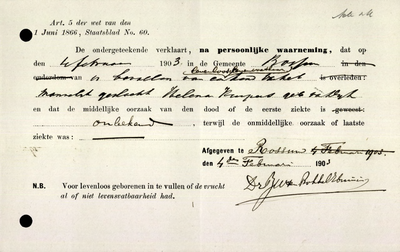 Art. 5 der wet van den
1 Juni 1866, Staatsblad No. 60.
De ondergeteekende verklaart, na persoonlijke waarneming, dat op
4 februari 1903 in de Gemeente Rossum in den
ouderdom van is bevallen van is overleden:
geslacht Helena
en dat de middellijke oorzaak van den dood of de eerste ziekte is geweest:
onbekend terwijl de onmiddellijke oorzaak of laatste
ziekte was:
Afgegeven te Rossum 4 Februari 1903.
den 4den Februari 1903
Dr
N.B. Voor levenloos geborenen in te vullen of de vrucht
al of niet levensvatbaarheid had.